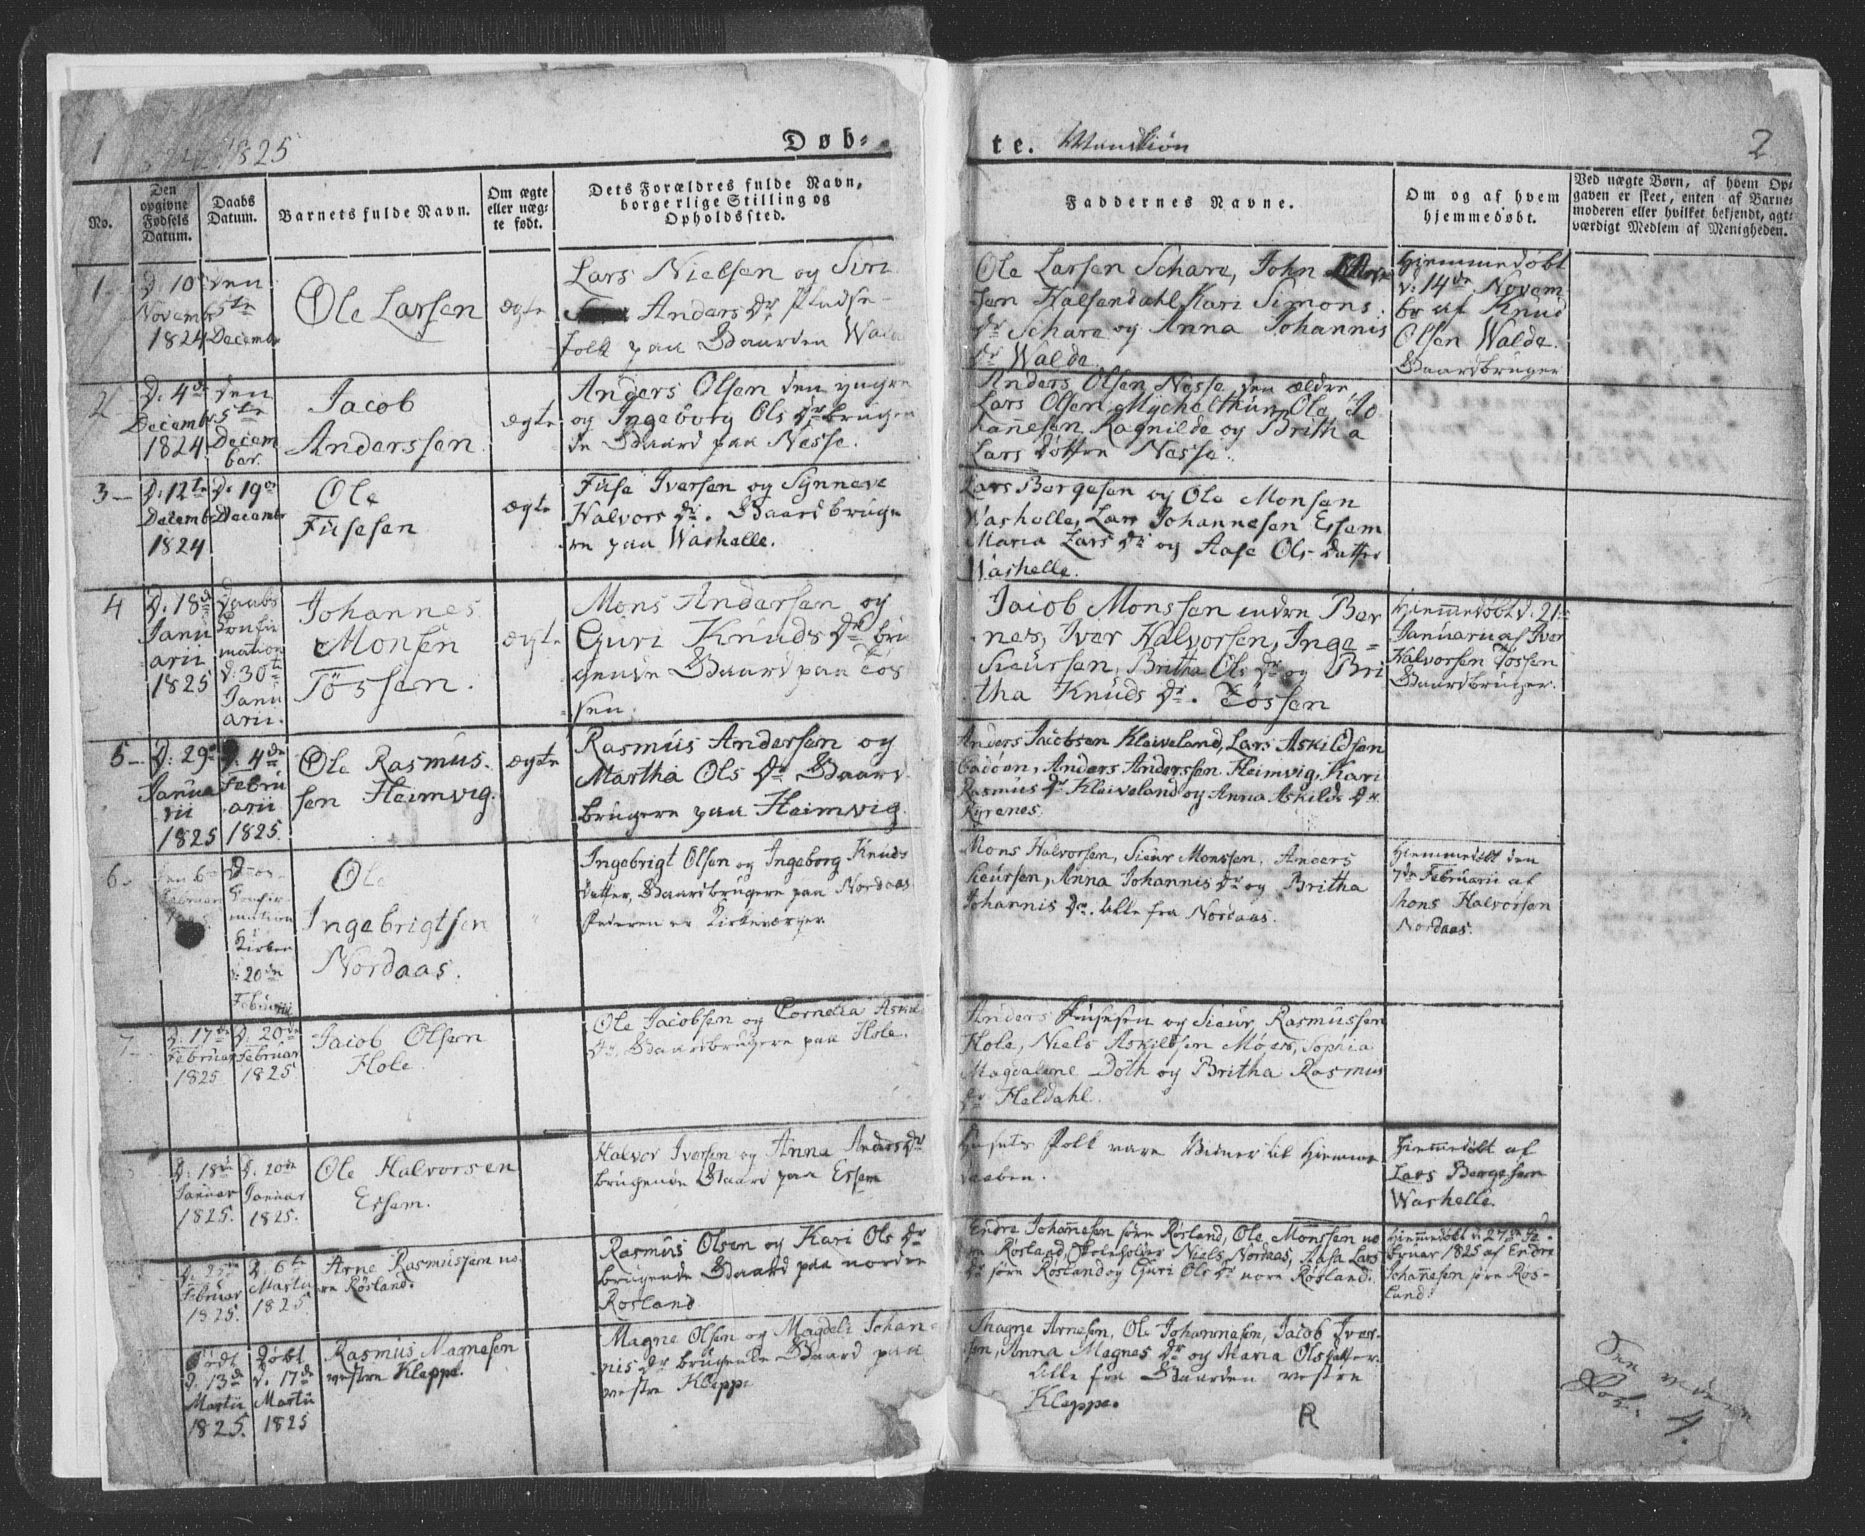 1
1825
Døb-
te. Mandkiøn
2
No.
Den
opgivne
Fødsels
Datum.
Daabs
Datum.
Barnets fulde Navn.
Om ægte
eller næg-
te født.
Dets Forældres fulde Navn,
borgerlige Stilling og
Opholdssted.
Faddernes Navne.
Om og af hvem
hjemmedøbt.
Ved nægte Børn, af hvem Op-
gaven er skeet, enten af Barne-
moderen eller hvilket bekjendt, agt-
værdigt Medlem af Menigheden.
1
D. 10
Novembr
1824
den
5te
Decembr
Ole Larsen
ægte
Lars Nielsen og Siri
Anders Dr. Pladse-
folk paa Gaarden Walde
Ole Larsen Schare, John
sen Halsendahl, Kari Simons
Dr Schare og Anna Johannis
Dr Walde
Hiemmedøbt
d. 14de Novem
br af Knud
Olsen Walde.
Gaardbruger
2
D. 4de
Decembr
1824
den
5te
Decem
ber.
Jacob
Anderssen
ægte
Anders Olsen den yngre
og Ingeborg Ols Dr brugen
de Gaard paa Nesse.
Anders Olsen Nesse den ældre
Lars Olsen Mychelthun, Ole Jo
hannesen Ragnilde og Britha
Lars døttre Nesse.
3
D. 12te
Decembr
1824
D. 19de
Decembr
Ole
Fusesen
ægte
Fuse Iversen og Synneve
Halvors Dr. Gaardbruge
re paa Washelle.
Lars Børgesen og Ole Monsen
Washelle, Lars Johannesen Essem
Maria Lars Dr og Aase Ols datter
Washelle.
4
D. 18de
Janu
arii
1825
Daabs
Confir
mation
d. 30te
Janu
arii.
Johannes
Monsen
Tössen.
ægte
Mons Andersen og
Guri Knuds Dr bru
gende Gaard paa Tös
sen.
Jacob Monssen indre Ber
nes, Iver Halvorsen, Inge
Sieursen, Britha Ols Dr og Bri
tha Knuds Dr. Tössen
Hiemmedøbt d. 21
Januarii af Iver
Halvorsen Tössen
Gaardbruger.
5
D. 29de
Janua
rii
1825
D. 4de
Febru
arii
1825.
Ole Rasmus-
sen Heimvig.
ægte
Rasmus Andersen og
Martha Ols Dr Gaard
brugere paa Heimvig.
Anders Jacobsen Kleiveland, Lars Askildsen
Gadøen, Anders Anderssen Heimvig, Kari
Rasmus Dr Kleiveland og Anna Askilds Dr
Ryrenes.
6
den 6te
Februar
Confir
mation
i
Kirken
d. 20de
Februarii
Ole
Ingebrigtsen
Nordaas.
Ingebrigt Olsen og Ingeborg Knuds
datter, Gaardbrugere paa Nordaas
Faderen er Kirkeværger
Mons Halvorsen, Sieur Monssen, Anders
Sieursen, Anna Johannis Dr og Britha
Johannis Dr. alle fra Nordaas.
Hiemmedøbt den
7de Februarii af
Mons Halvorsen
Nordaas.
7
D. 17de
Februar
1825
D. 20de
Februar
1825
Jacob Olsen
Hole.
Ole Jacobsen og Cornelia Askild
Dr, Gaardbrugere paa Hole.
Anders Fusesen og Sieur Rasmussen
Hole, Niels Askildsen Møen, Sophia
Magdalene Doth og Britha Rasmus
Dr Heldahl.
D. 18de
Januar
1825.
D. 20de
Januar
1825.
Ole Halvorsen
Essem.
Halvor Iversen og Anna Anders Dr
brugende Gaard paa Essem
Husets Folk vare Vidner til Hiemme
daaben.
Hiemmedøbt af
Lars Børgesen
Washelle.
D. 25de
Februar
1825.
D. 6te
Martii
1825.
Arne Rasmussen no
re Røsland.
Rasmus Olsen og Kari Ols Dr
brugende Gaard paa nordre
Røsland
Endre Johannesen søre Røsland, Ole Monssen no
re Røsland, Skoleholder Niels Nordaas, Aasa Lars
Dr søre Røsland og Guri Ols Dr nore Røsland.
Hiemmedøbt d. 27de Fe-
bruar 1825 af Endre
Johannesen søre Røs-
land.
Født
d. 13de
Martii
1825.
Døbt
d. 17de
Martii
1825
Rasmus Magnesen
vestre Kleppe.
Magne Olsen og Magdeli Johan-
nis Dr brugende Gaard paa
vestre Kleppe
Magne Arnesen, Ole Johannesen, Jacob Iver-
sen, Anna Magnes Dr og Maria Ols datter
alle fra Gaarden vestre
Kleppe.
R
4.